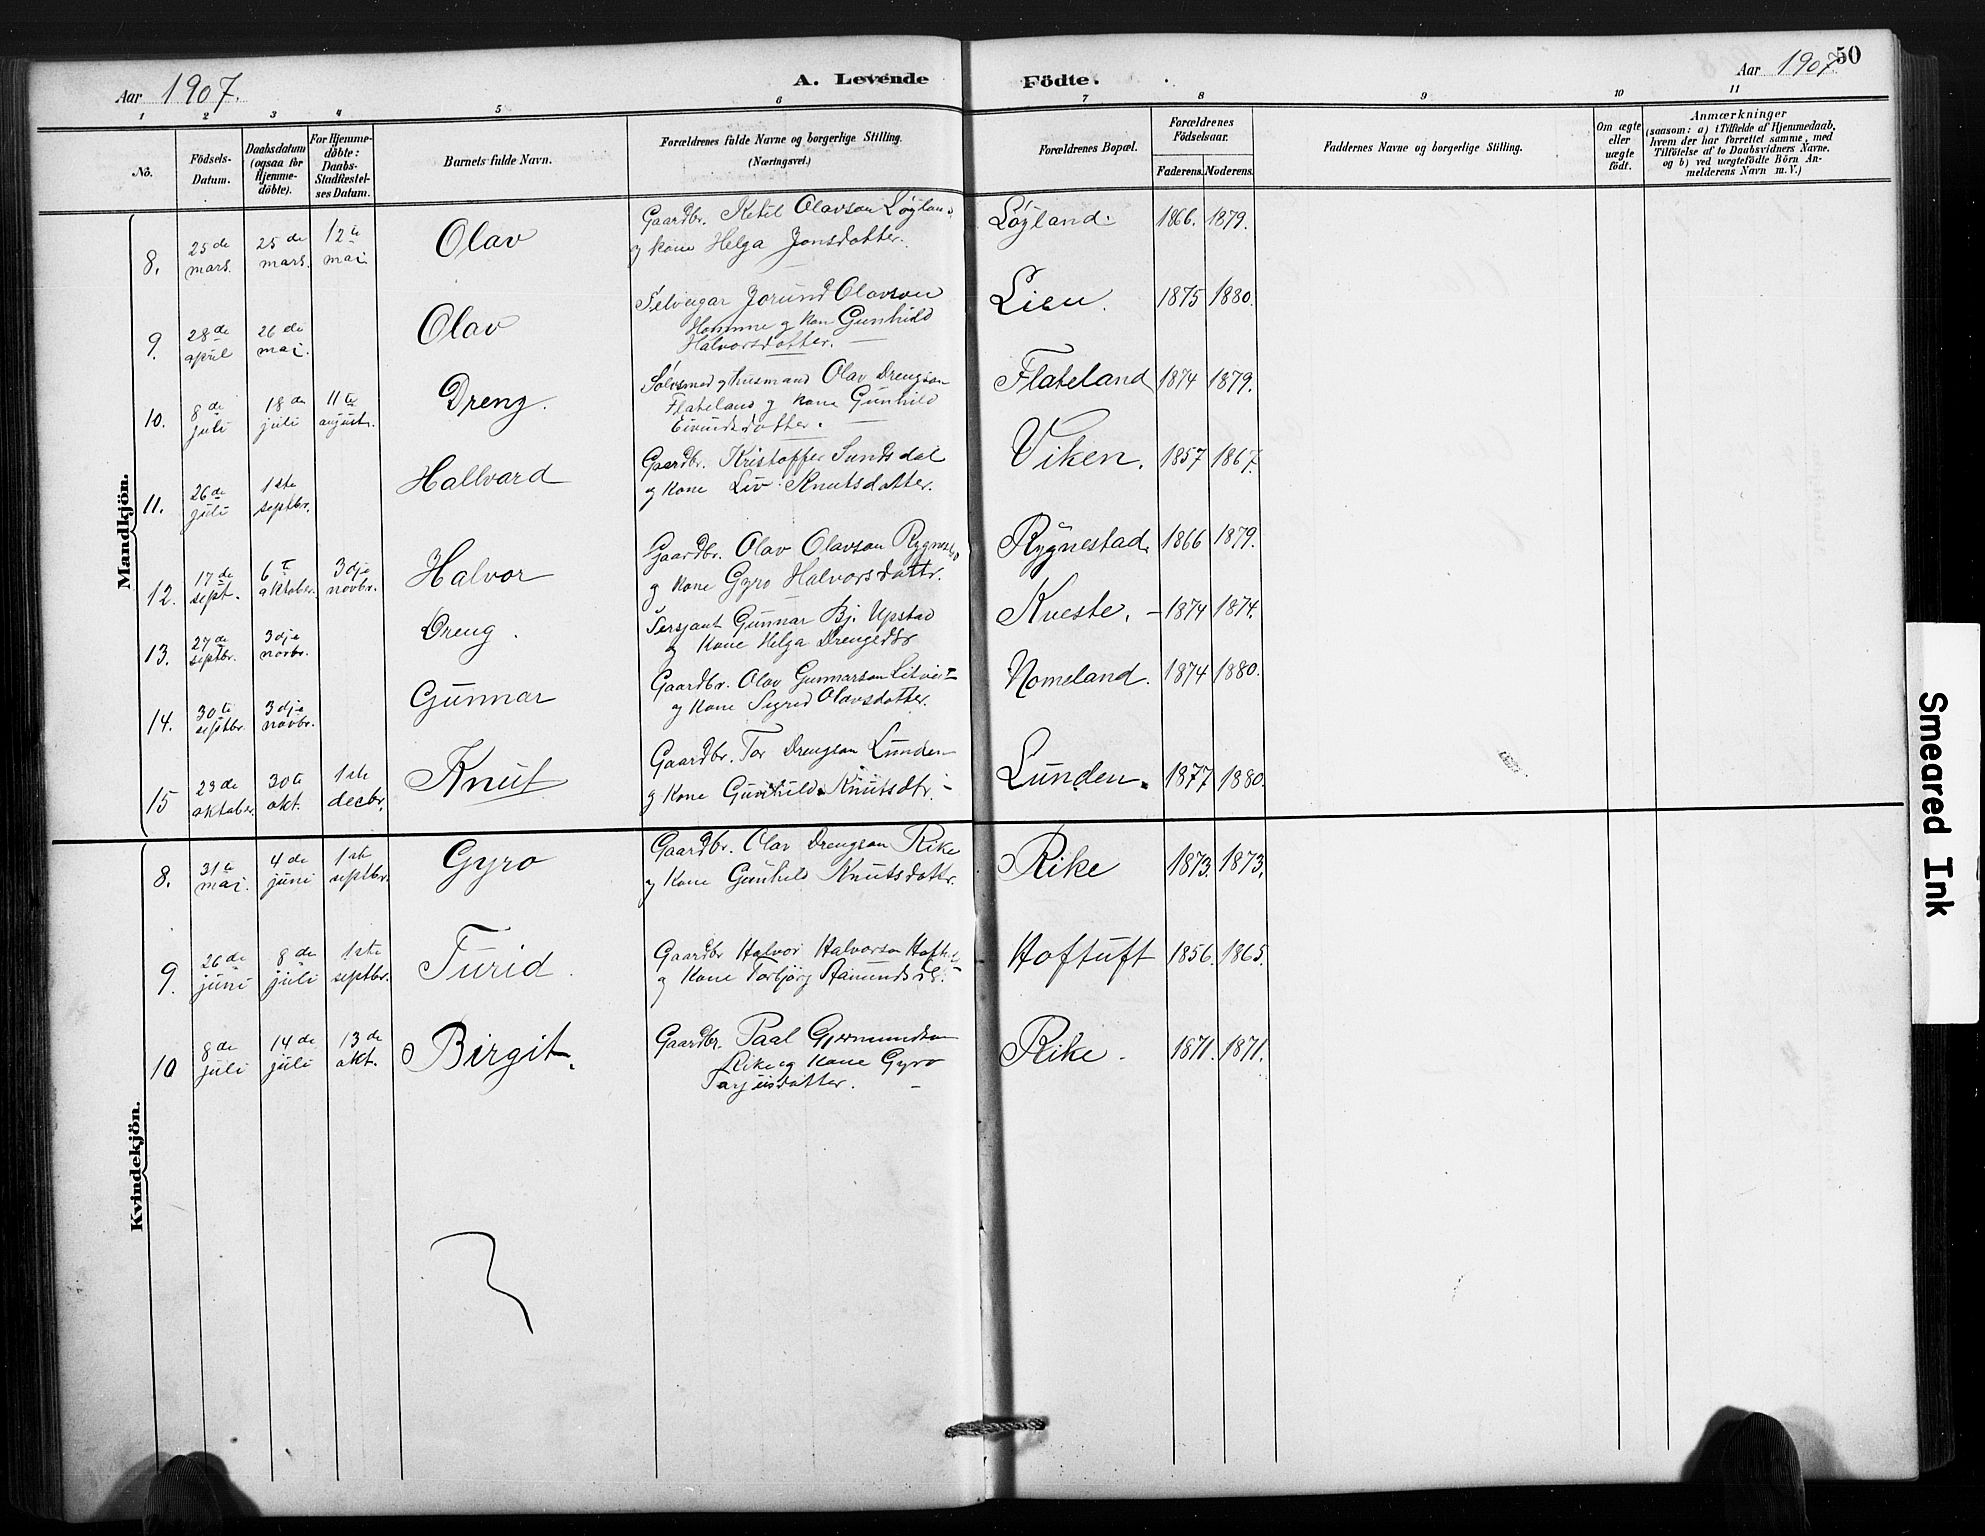 Aar 1907.
A. Levende Födte.
Aar 1907
50
1 2 3 4 5 6 7 8 9 10 11
No.
Födsels-
Datum.
Daabsdatum
(ogsaa for
Hjemme-
döbte).
For Hjemme-
döbte:
Daabs-
Stadfæstel-
ses Datum.
Barnets fulde Navn.
Forældrenes fulde Navne og borgerlige Stilling.
(Næringsvei.)
Forældrenes Bopæl.
Forældrenes
Födselsaar.
Faderens. Moderens.
Faddernes Navne og borgerlige Stilling.
Om ægte
eller
uægte
födt.
Anmærkninger
(saasom: a) i Tilfælde af Hjemmedaab,
hvem der har forrettet samme, med
Tilföielse af to Daabsvidners Navne,
og b) ved uægtefödte Börn An-
melderens Navn m. V.)
Mandkjön.
8. 25de mars. 25de mars. 12te mai Olav
Gaardbr. Ketil Olavson Løyland
og kone Helga Jonsdotter.
Løyland. 1866. 1879.
9. 28de april 26de mai. Olav
Selveigar Jorund Olavson
Homme og kone Gunhild
Halvorsdotter.
Lien. 1875 1880.
10. 8de juli 18de juli 11te august. Dreng.
Sølvsmed og husmand Olav Drengson
Flateland og kone Gunhild
Eivindsdotter.
Flateland 1874 1879.
11. 26de juli 1ste septbr. Hallvard
Gaardbr. Kristoffer Sundsdal
og kone Liv Knutsdotter.
Viken. 1857 1867.
12. 17de sept. 6te oktober. 3dje novbr. Halvor
Gaardbr. Olav Olavson Rygnestad
og kone Gyro Halvorsdottr.
Rygnestad. 1866 1879.
13. 27de septbr. 3dje novbr. Dreng.
Sersjant Gunnar Bj. Upstad
og kone Helga Drengedtr
Kveste. – 1874 1874.
14. 30te septbr. 3dje novbr. Gunnar
Gaardbr. Olav Gunnarson
og kone Sigrid Olavsdotter.
Nomeland. 1874 1880.
15 23de oktober 30te okt. 1ste decbr. Knut
Gaardbr. Tor Drengson Lunden
og kone Gunhild Knutsdtr. –
Lunden. 1877 1880.
Kvindekjön.
8. 31te mai. 4de juni 1ste septbr. Gyro
Gaardbr. Olav Drengson Rike
og kone Gunhild Knutsdottr.
Rike 1873. 1873.
9. 26de juni 8de juli 1ste septbr. Turid.
Gaardbr Halvor Halvorson
og kone Torbjørg
Hoftuft 1856. 1865.
10 8de juli 14de juli 13de okt. Birgit.
Gaardbr. Paal Gjermundson
Rike og kone Gyro
Tarjeisdotter. –
Rike. 1871. 1871.
Smeared Ink